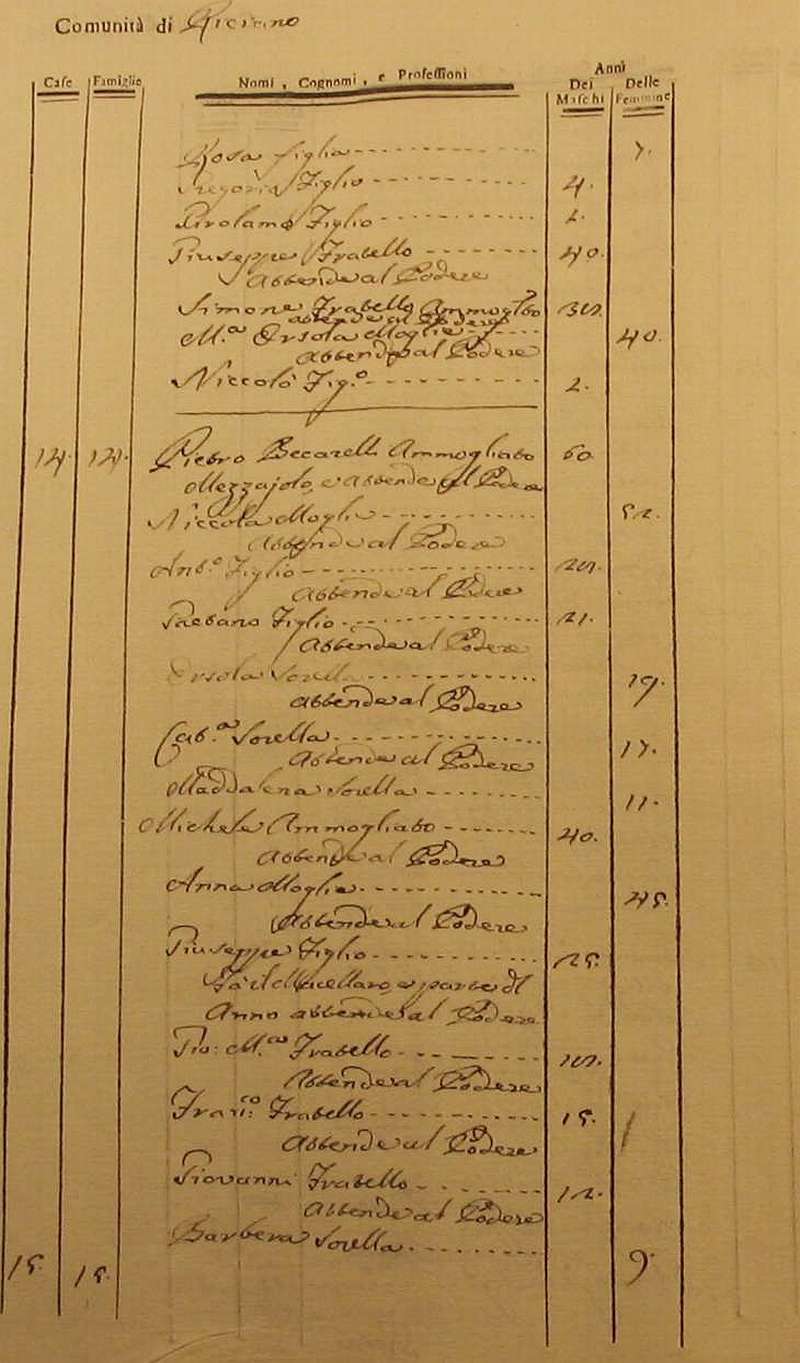 Comunità di
Case Famiglie Nomi, Cognomi, e Professioni Anni
Dei Maschi Delle Femmine
Rosa Figlia 7.
Gregorio Figlio 4.
Girolamo Figlio 2.
Giuseppe Fratello 40.
Attende al Podere
Simone Fratello Ammogliato
attende al Podere
M.a Orsola Moglie 40.
attende al Podere
Niccolò Fig.o 2.
14. 14. Pietro Beccarelli Ammogliato 60.
Mezzajolo, e attende al Podere
Niccola Moglie 52.
Attende al Podere
Ant.o Figlio
Attende al Podere
Gaetano Figlio 21.
Attende al Podere
Orsola Sorella 19.
attende al Podere
Cat.a Sorella 17.
Attende al Podere
Maddalena Sorella 11.
Michele Ammogliato 40.
attende al Podere
Anna Moglie 45.
Attende al Podere
Giuseppe Figlio 25.
Fa il Macellaro, e parte dl
Anno attende al Podere
Gio: M.a Fratello
Attende al Podere
Fran.co Fratello 15.
Attende al Podere
Giovanni Fratello 12.
attende al Podere
15. 15. Barbera Sorella 9.